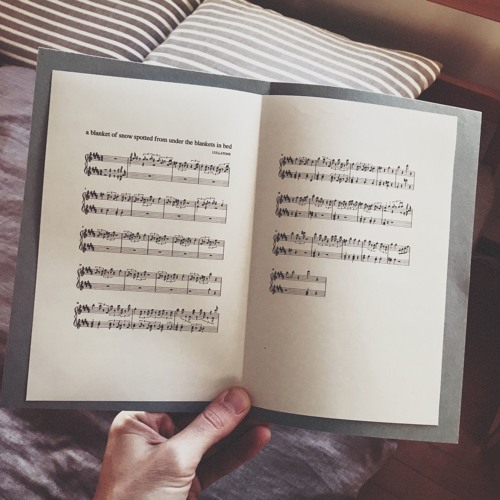 a blanket of snow spotted from under the blankets in bed
LULLATONE